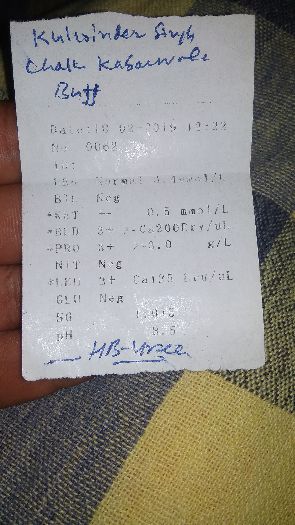 Kulwinder Singh
Chalk Kabarwala
Buff
Date:10 02-2016 12:22
No. 0062
UBG Normal 3.4umol/L
BIL Neg
*KET +- 0.5 mmol/L
*BLD 3+ >=Ca200Ery/uL
*PRO 3+ >=3.0 g/L
NIT Neg
*LEU 3+ Ca125 Leu/uL
GLU Neg
SG 1.015
pH 6.5
HB-